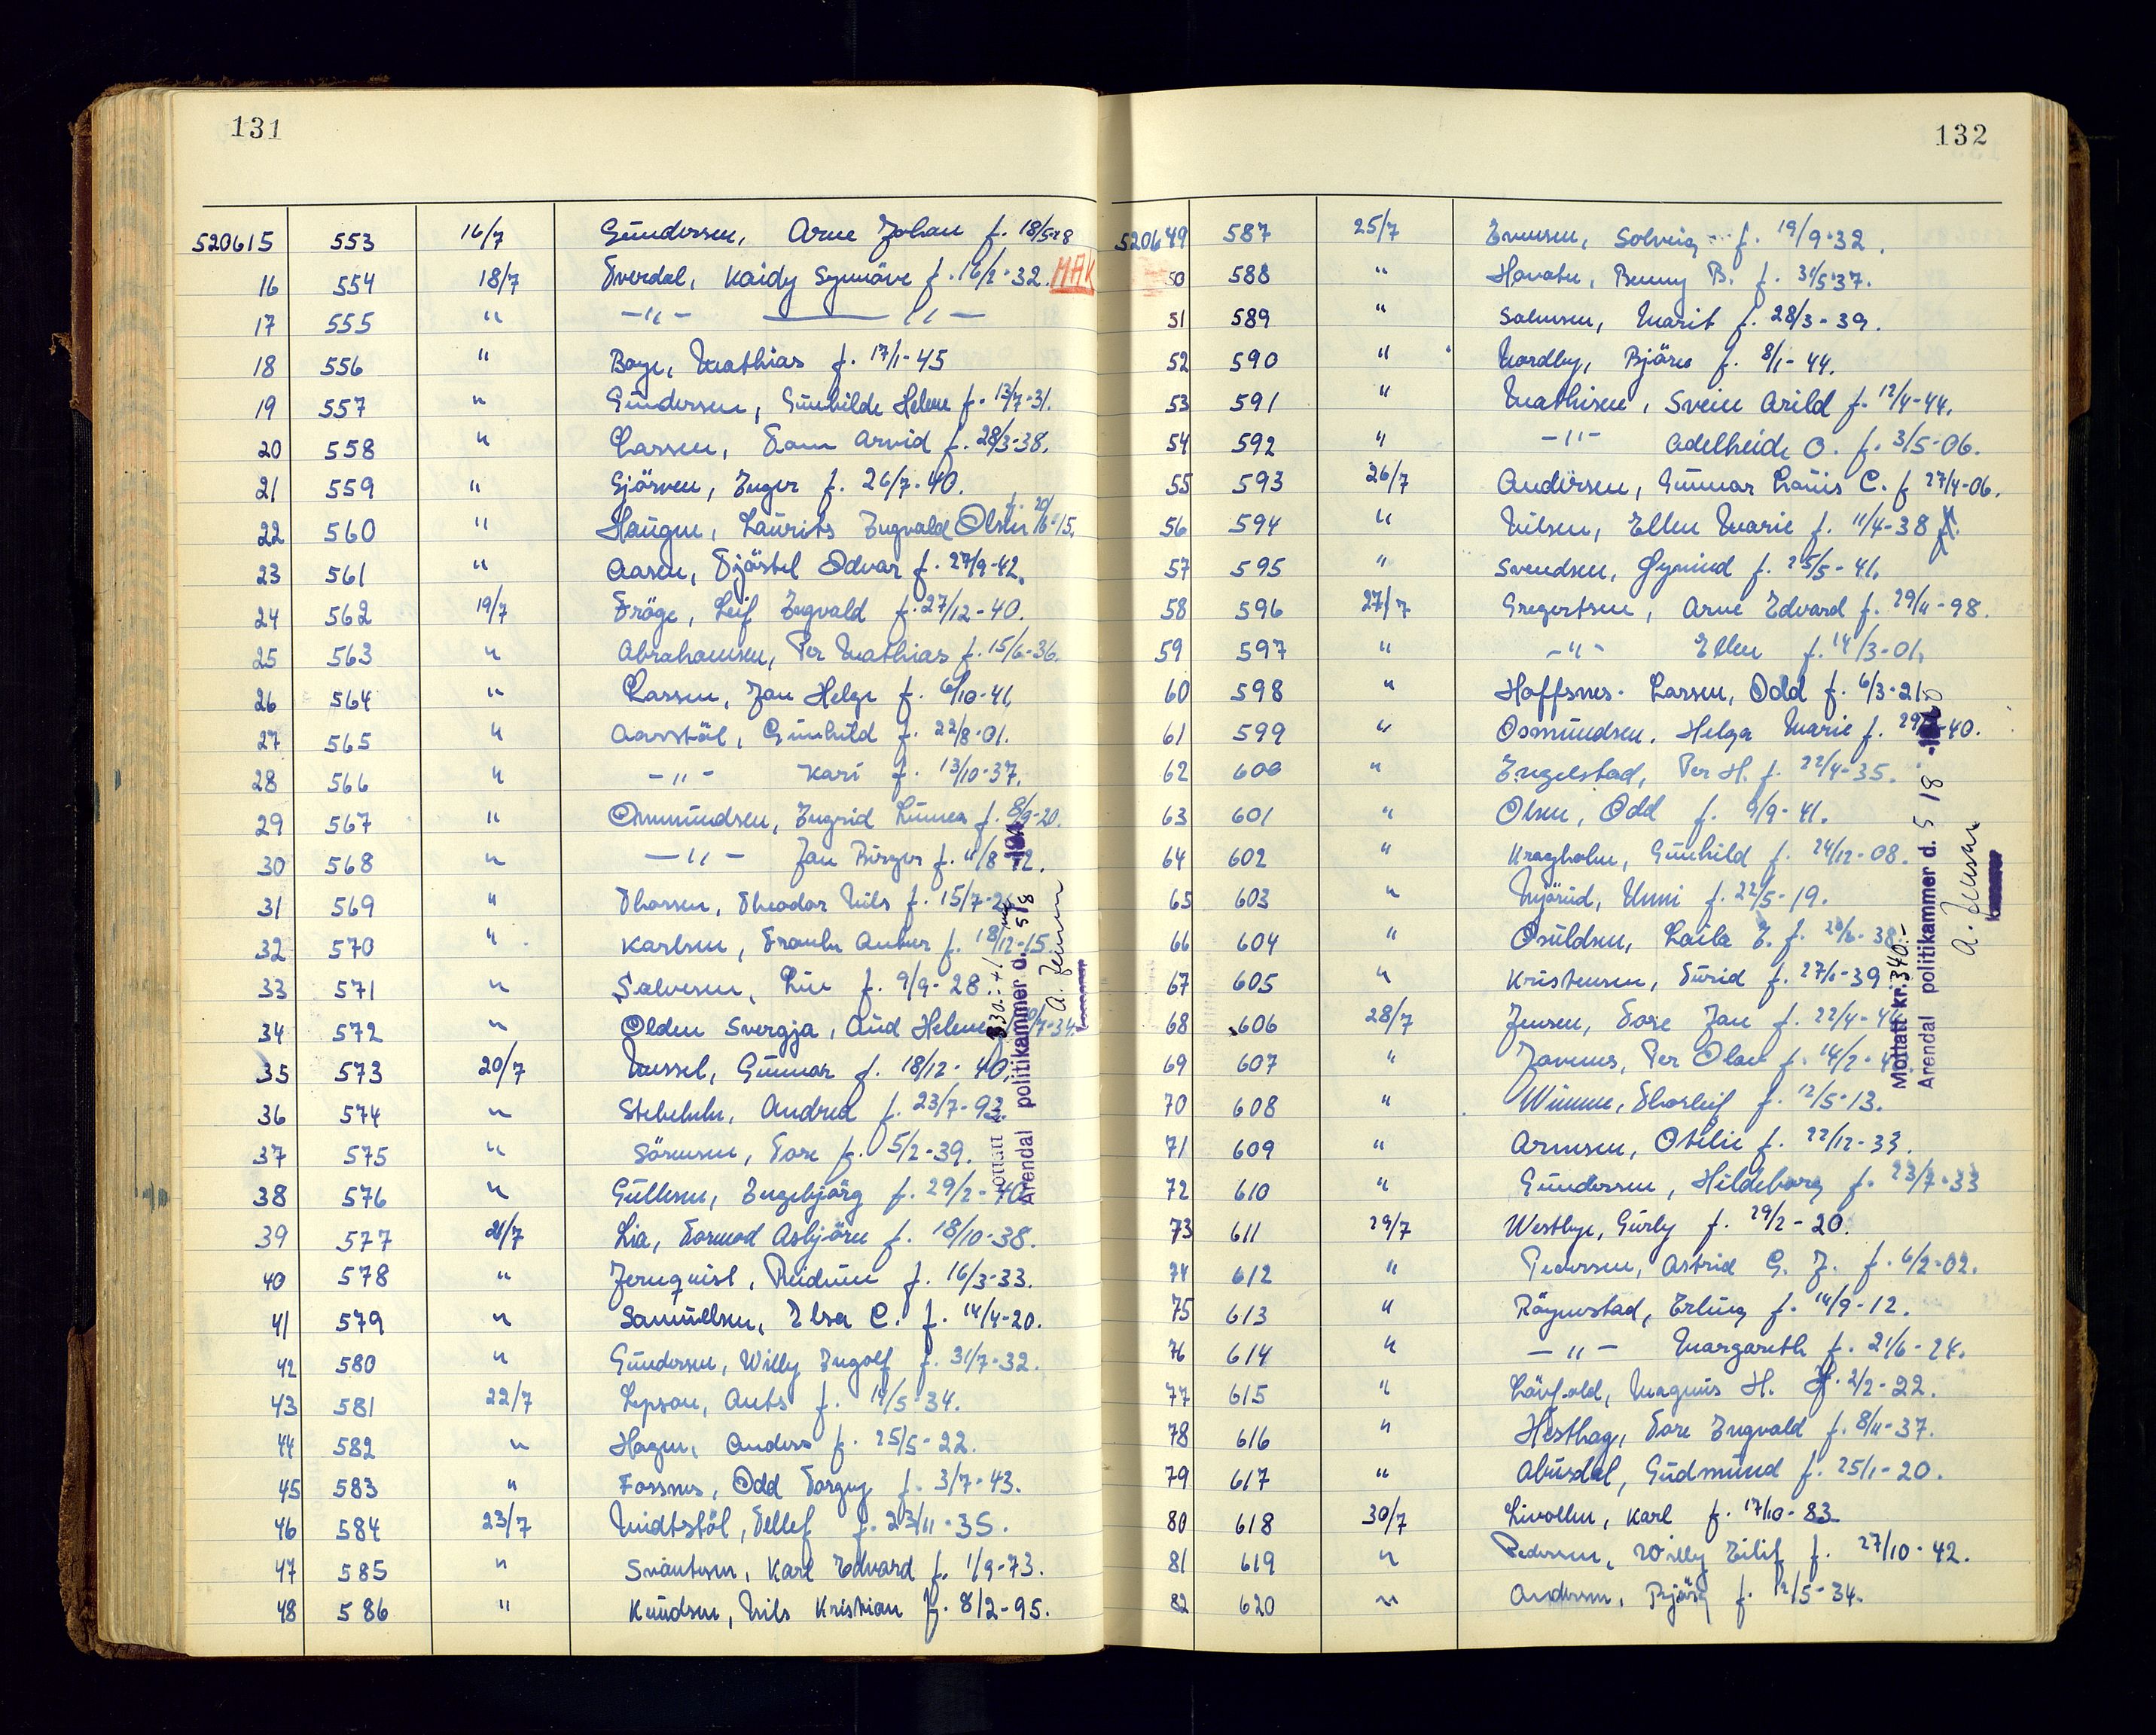 131
520615 553 16/7 Gundersen, Arne Johan f. 18/5-28
16 554 18/7 Tverdal, Kaidy Synnöve f. 16/2-32. MAK
17 555 " —"— —"—
18 556 " Boye, Mathias f. 17/1-45
19 557 " Gundersen, Gunhilde Helene f. 13/7-31.
20 558 " Larsen, Tom Arvid f. 28/3-38.
21 559 " Gjörven, Inger f. 26/7-40.
22 560 " Haugen, Laurits Ingvald Olsen f. 20/6-15.
23 561 " Aasen, Kjöstel Odvar f. 27/9-42.
24 562 19/7 Tröge, Leif Ingvald f. 27/12-40.
25 563 " Abrahamsen, Per Mathias f. 15/6-36.
26 564 " Larsen, Jan Helge f. 6/10-41.
27 565 " Aarstöl, Gunhild f. 22/8-01.
28 566 " —"— Kari f. 13/10-37.
29 567 " Ommundsen, Ingrid Linnea f. 8/9-20.
30 568 " —"— Jan Birger f. 11/8
31 569 " Thorsen, Theodor Nils f. 15/7-
32 570 " Karlsen, Frank Antur f. 18/12-15.
33 571 " Salvesen, Liv f. 9/9-28.
34 572 " Olden Svergja, Aud Helene /7-34.
35 573 20/7 Mussel, Gunnar f. 18/12-40.
36 574 " Andrea f. 23/7-93.
37 575 " Sörensen, Tore f. 5/2-39.
38 576 " Gullesen, Ingebjörg f. 29/2-40
39 577 21/7 Lia, Tormod Asbjörn f. 18/10-38.
40 578 " Jernquist, Reidunn f. 16/3-33.
41 579 " Samuelsen, Elsa C. f. 14/4-20.
42 580 " Gundersen, Willy Ingolf f. 31/7-32.
43 581 22/7 Lepson, Ants f. 14/5-34.
44 582 " Hagen, Anders f. 25/5-22.
45 583 " Fossnes, Odd Torgny f. 3/7-43.
46 584 23/7 Midtstöl, Tellef f. 23/11-35.
47 585 " Svantesen, Karl Edvard f. 1/9-73.
48 586 " Knudsen, Nils Kristian f. 8/2-95.
Arendal politikammer d. 5/8
A. Jensen
132
520649 587 25/7 Evensen, Solveig f. 19/9-32.
50 588 " Benny B. f. 31/5-37.
51 589 " Salmsen, Marit f. 28/3-39.
52 590 " Nordby, Björn f. 8/1-44.
53 591 " Mathisen, Svein Arild f. 12/4-44.
54 592 " —"— Adelheide O. f. 3/5-06.
55 593 26/7 Andersen, Gunnar Louis C. f 27/4-06.
56 594 " Nilsen, Ellen Marie f. 11/4-38
57 595 " Svendsen, Öymund f. 25/5-41.
58 596 27/7 Gregertsen, Arne Edvard f. 29/11-98.
59 597 " —"— Ellen f. 14/3-01.
60 598 " Hoffsnes-Larsen, Odd f. 6/3-21
61 599 " Osmundsen, Helga Marie f. 29/ -40.
62 600 " Engelstad, Per H. f. 22/4-35.
63 601 " Olsen, Odd f. 9/9-41.
64 602 " Kragholm, Gunhild f. 24/12-08.
65 603 " Mjörud, Unni f. 22/5-19.
66 604 " Osuldsen, Laila E. f. 28/6-38
67 605 " Kristensen, Turid f. 27/6-39
68 606 28/7 Jensen, Tore Jan f. 22/4-4
69 607 " Per Olav f. 14/2-4
70 608 " Thorleif f. 12/5-13.
71 609 " Arnesen, Otelie f. 22/12-33.
72 610 " Gundersen, Hildeborg f. 23/7-33
73 611 29/7 Westbye, Gurly f. 29/2-20.
74 612 " Pedersen, Astrid G. J. f. 6/2-02.
75 613 " Röynestad, Erling f. 14/9-12.
76 614 " —"— Margareth f. 21/6-24.
77 615 " Lövfold, Magnus H. f. 2/2-22.
78 616 " Hesthag, Tore Ingvald f. 8/11-37.
79 617 " Abusdal, Gudmund f. 25/1-20.
80 618 30/7 Livollen, Karl f. 17/10-83
81 619 " Pedersen, Willy Eilif f. 27/10-42.
82 620 " Andersen, Björg f. 12/5-34.
Mottatt kr. 340.-
Arendal politikammer d. 5/8
A. Jensen